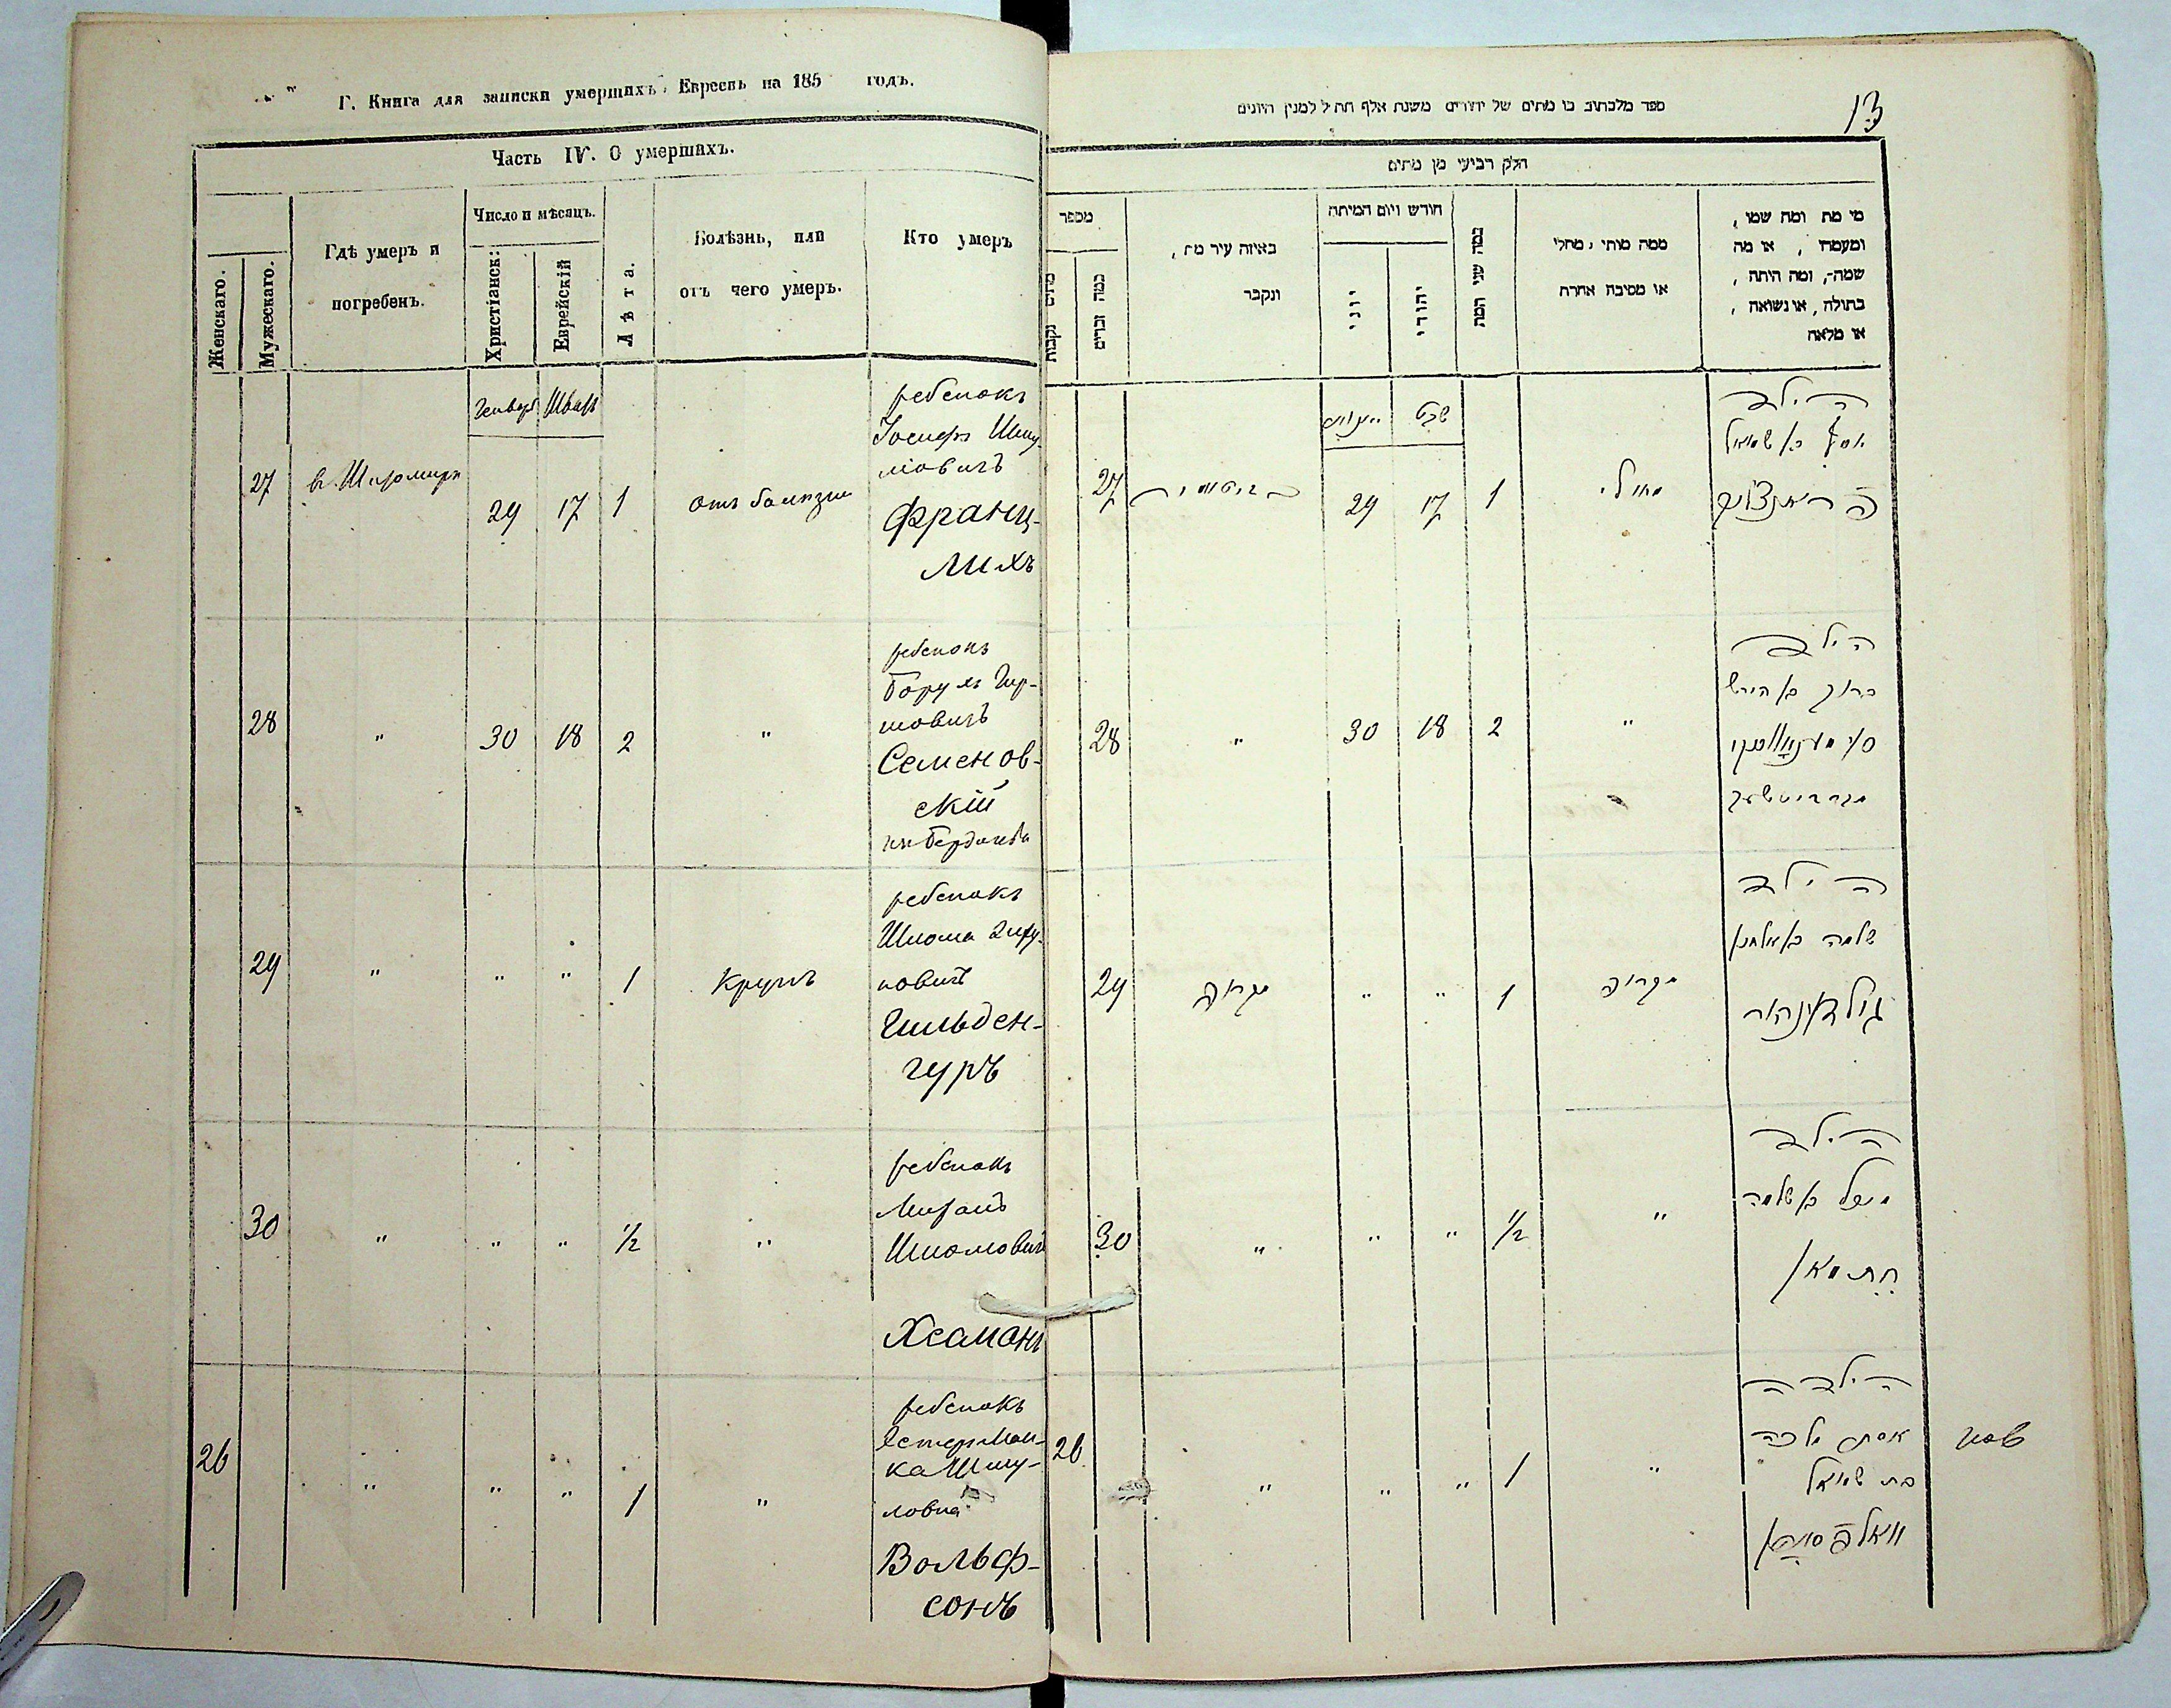 Г. Книга для записки умершихъ Евреевъ на 185 годъ.
Часть IV. О умершахъ.
Женскаго.
Мужескаго.
Гдѣ умеръ и
погребенъ.
Число и мѣсяцъ.
Христіанск:
Еврейскій
Лѣта.
Болѣзнь, или
отъ чего умеръ.
Кто умеръ
Январь Шватъ
27 в. Житомирѣ 29 17 1 отъ болезни
ребенокъ
Іосифъ Шму-
Франц-
лихъ
28 " 30 18 2 "
ребенокъ
Борухъ Гир-
шовичъ
Семенов-
скій
изъ Бердичева
29 " " " 1 крупъ
ребенокъ
Шлома
новичъ
Гильден-
гуръ
30 " " " 1/2 "
ребенокъ
Шломовичъ
26 " " " 1 "
ребенокъ
Естер Мал-
ка Шму-
ловна
Вольф-
сонъ
13
ספר מלכתוב בו מתים של יהודים משנת אלף תת"ל למנין היונים
חלק רביעי מן מתים
מספר
מתים נקבות
כמה זכרים
באיזה עיר מת,
ונקבר
חודש ויום המיתה
יוני
יהודי
כמה שני המת
ממה מותו, מחלי
או מסיבה אחרת
מי מת ומה שמו,
ומעמדו, או מה
שמה, ומה היתה,
בתולה, או נשואה,
או מלאה
יאנואר שבט
27 29 17 1 חולי
הילד
יוסף בן שמואל
28 " 30 18 2 "
הילד
ברוך בן הירש
מברדיטשוב
29 " " 1
הילד
שלמה בן אלחנן
30 " " " 1/2 "
הילד
בן שלמה
26 " " " 1 "
הילדה
אסתר מלכה
בת שמואל
וואלפסוהן